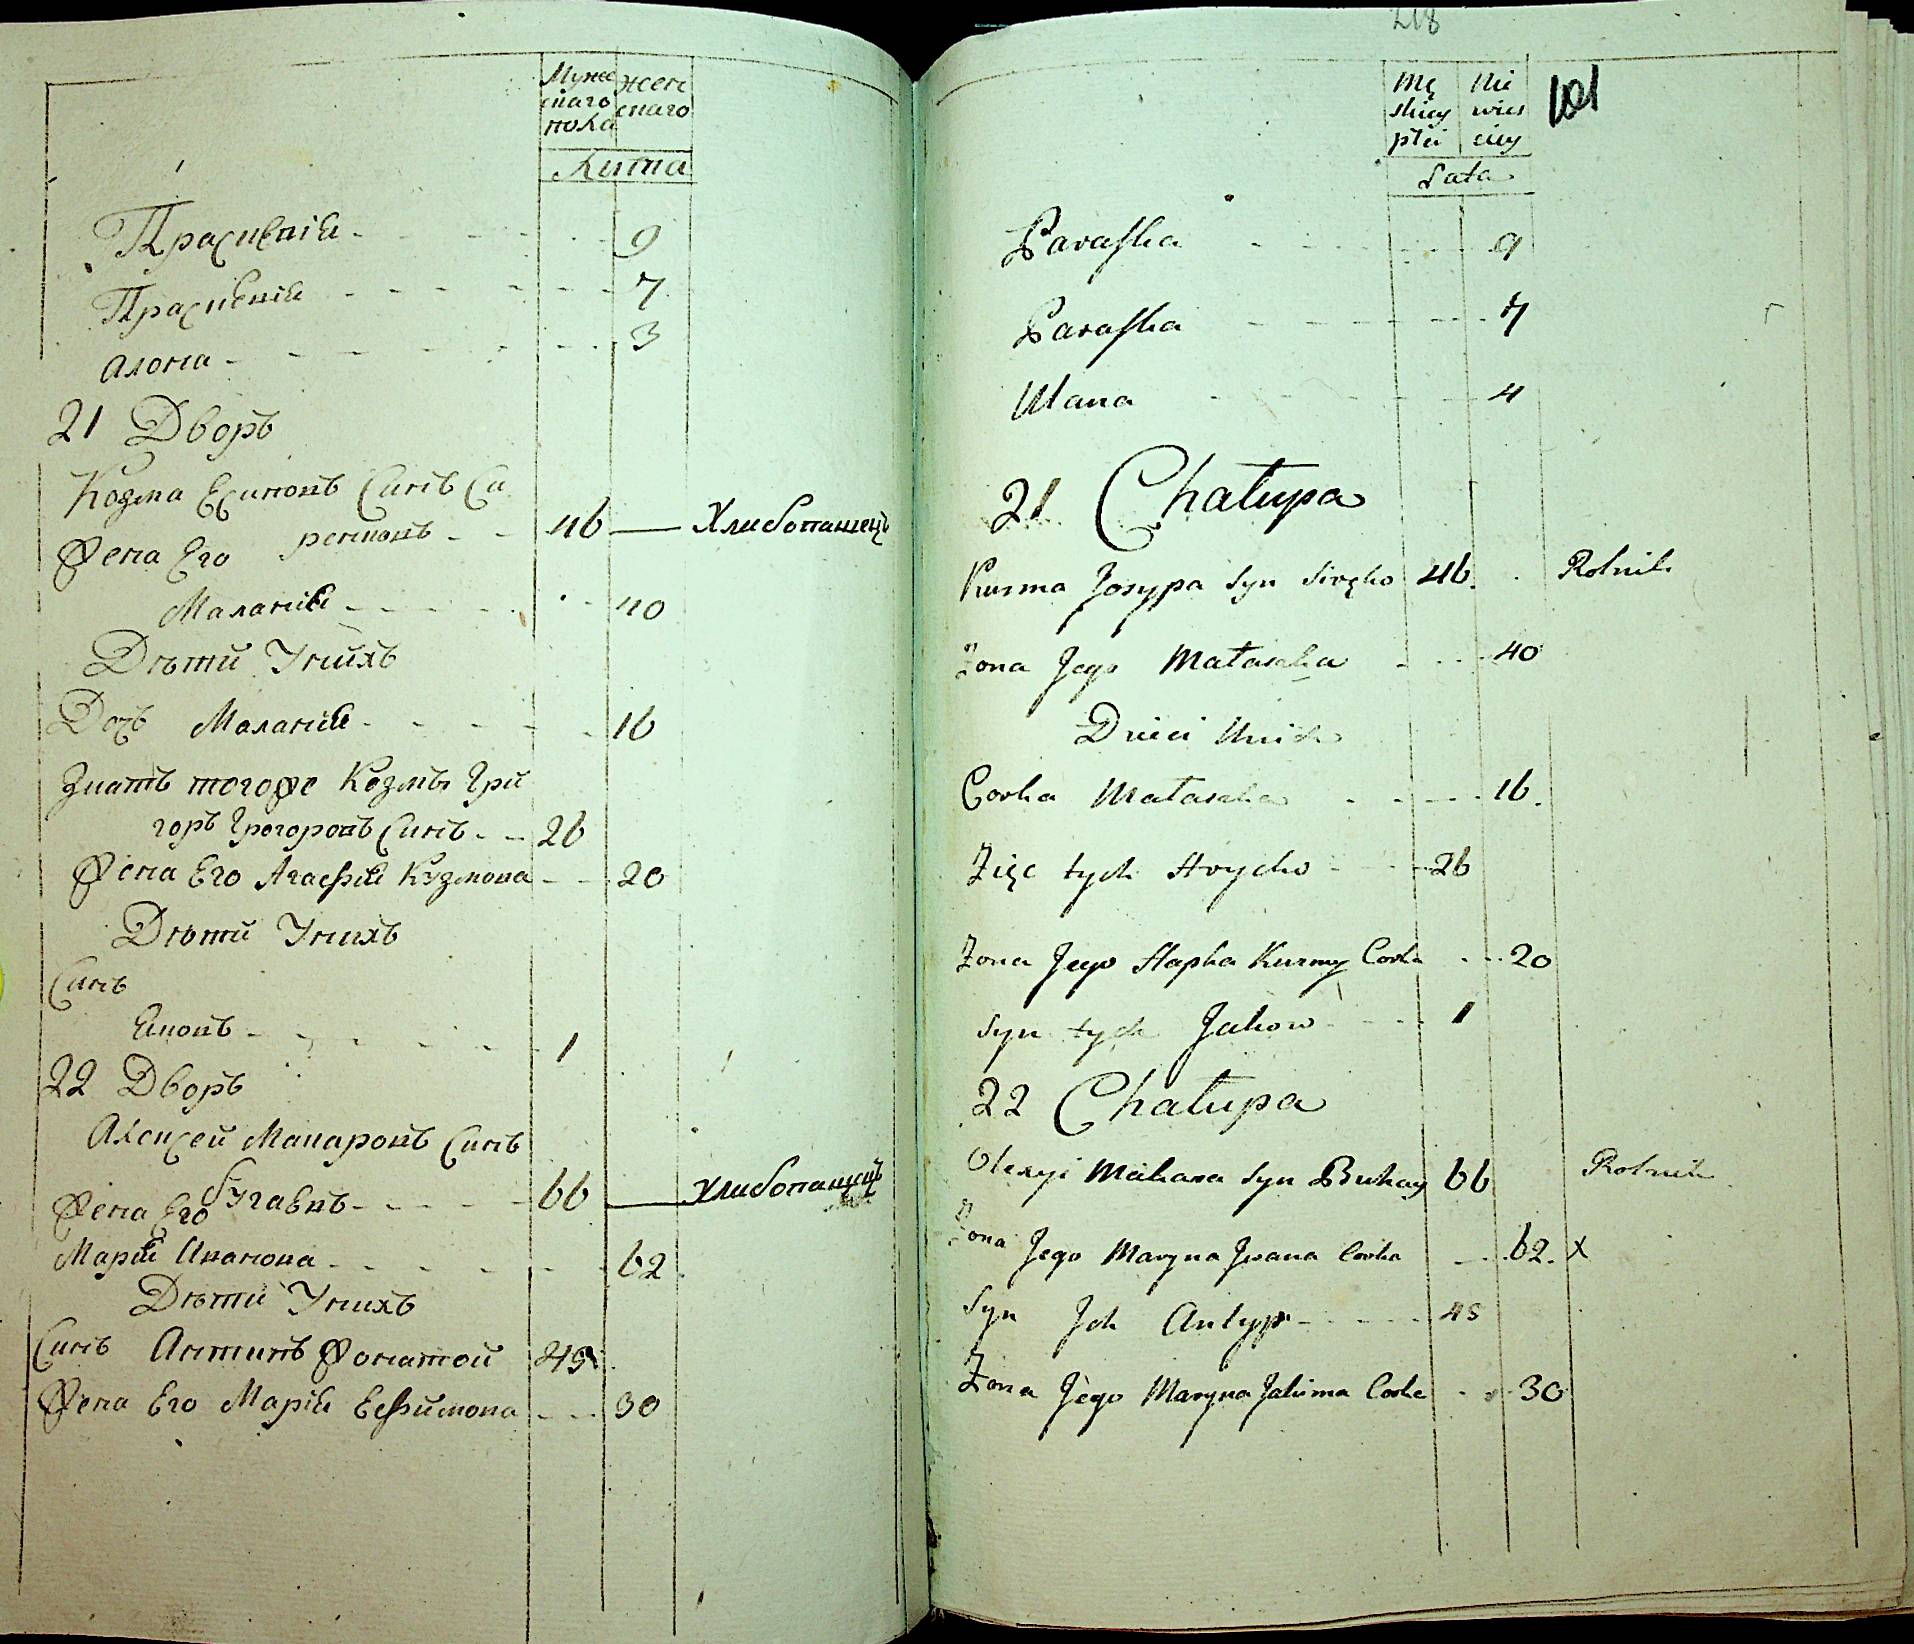 Мужескаго пола
женскаго
Лита
Праскевiя 9
Праскевiя 7
Алона 3
21 Дворъ
Козма Есиповъ Синъ Си
ретюкъ 46 Хлибопашецъ
Жена Его
Маланiя 40
Дѣти Унихъ
Дочъ Маланiя 16
Зиать тогоже Козмы Гри
горъ Грогоровъ Синъ 26
Жена Его Агафiя Кузмова 20
Дѣти Унихъ
Синъ
Яковъ 1
22 Дворъ
Алексей Макаровъ Синъ
Бугавъ 66 Хлибопашецъ
Жена Его
Марiя Иванова 62
Дѣти Унихъ
Синъ Антипъ Жонатой 45
Жена Его Марiя Ефимова 30
218
101
Męskiey płci
Niewiesciey
Lata
Paraska 9
Paraska 7
Ulana 4
21 Chałupa
Kuzma Josypa Syn Siręko 46 Rolnik
Zona Jego Małaszka 40
Dzieci Unich
Corka Małaszka 16
Zięc tych Hrycko 26
Zona Jego Hapka Kuzmy Corka 20
Syn tych Jakow 1
22 Chałupa
Olexyi Makara Syn Buhay 66 Rolnik
Zona Jego Maryna Jwana Corka 62 x
Syn Jch Antyp 45
Zona Jego Maryna Jakima Corka 30